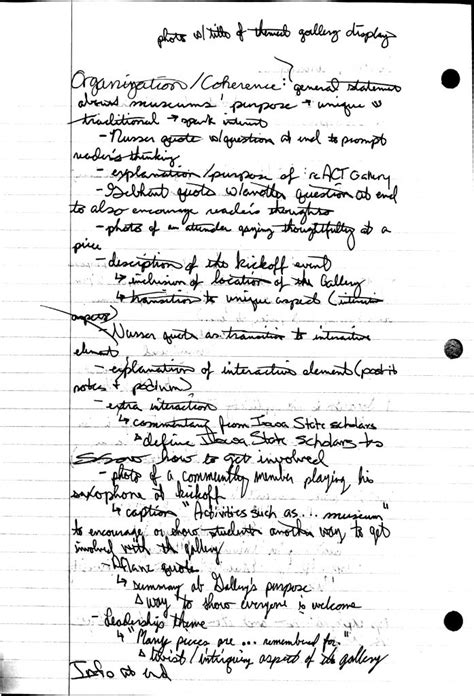 photo w/ title of themed gallery display
Organization/Coherence: general statement
about museums' purpose → unique vs
traditional → spark interest
- Nusser quote w/question at end to prompt
reader's thinking
- explanation/purpose of reACT Gallery
- Gebhart quote w/another question at end
to also encourage reader's thoughts
- photo of an attendee gazing thoughtfully at a
piece
- description of the kickoff event
↳ inclusion of location of the Gallery
↳ transition to unique aspect
aspects)
- Nusser quote as transition to interactive
element
- explanation of interactive element (post it
notes + podium)
- extra interaction
↳ commentary from Iowa State scholars
define Iowa State scholars to
show how to get involved
- photo of a community member playing his
saxophone at kickoff
↳ caption "Activities such as ... museum"
to encourage or show students another way to get
involved with the gallery
- quote
↳ summary of Gallery's purpose
way to show everyone is welcome
- Leadership theme
↳ "Many pieces are ... remembered for"
twist/intriguing aspect of the gallery
Info at end